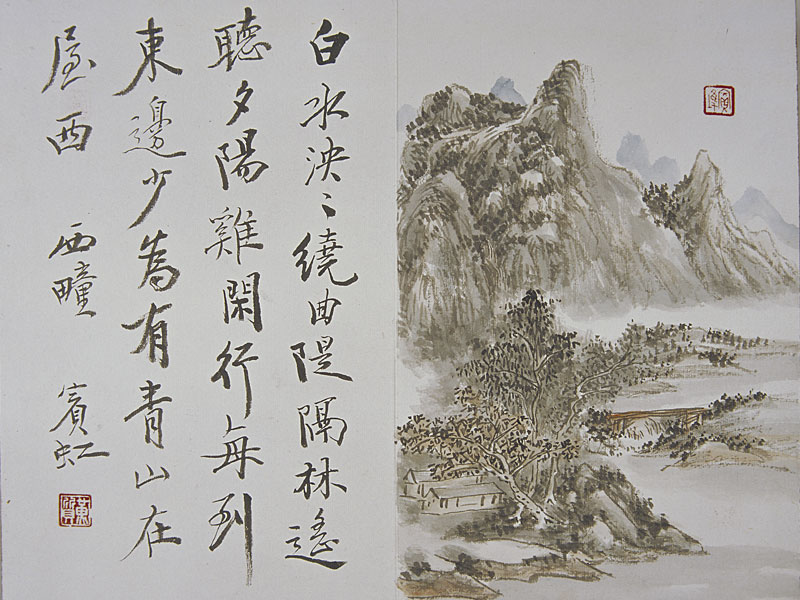 白水泱〻繞曲隄隔林遙
聽夕陽雞閑行每到
東邊少為有青山在
屋西
西疇 賓虹